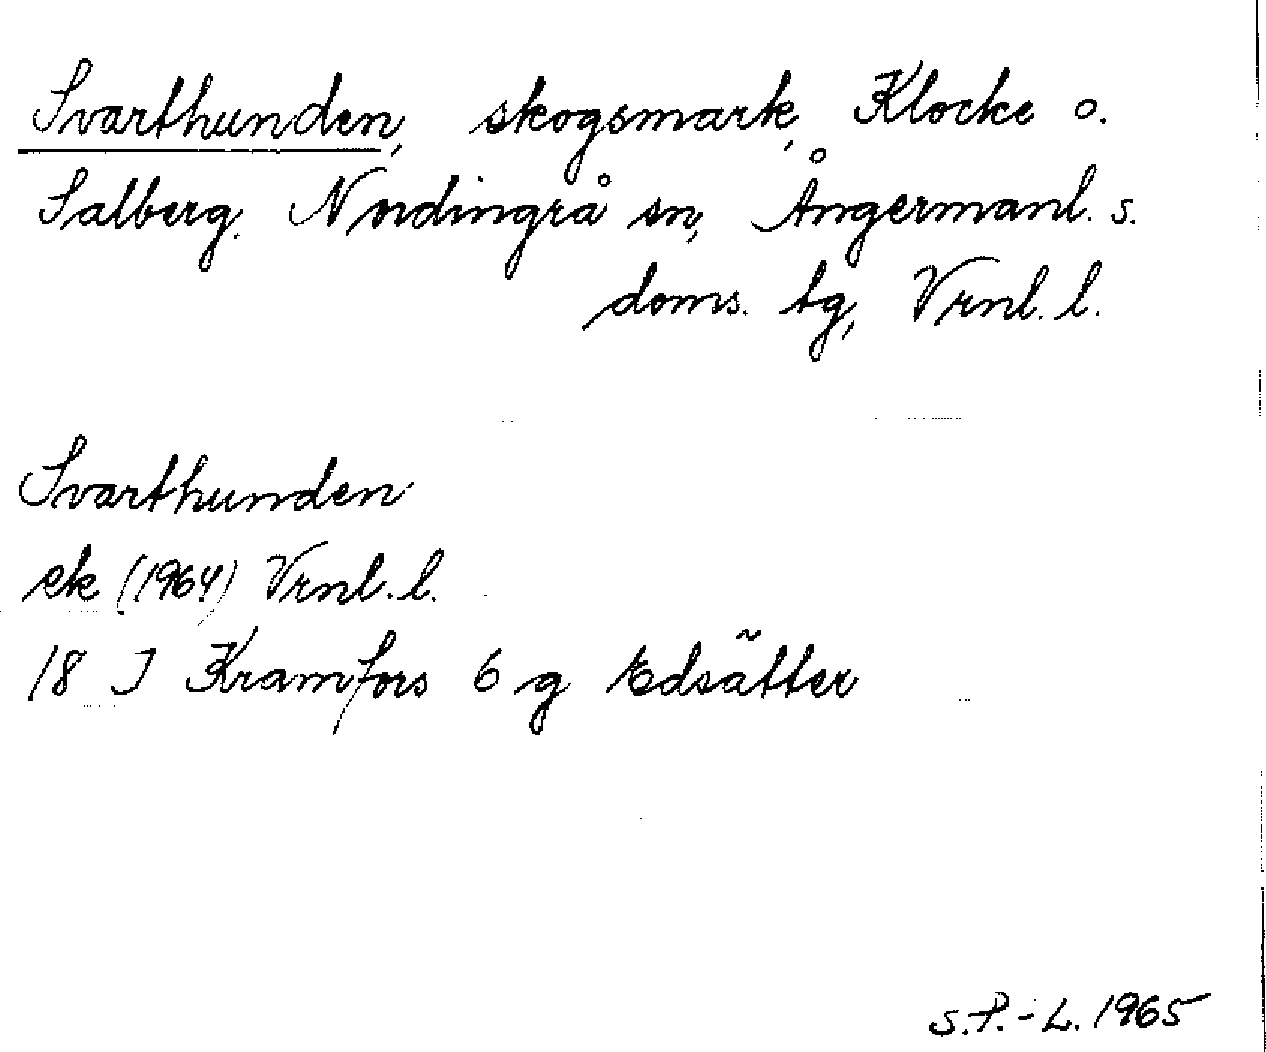 Svarthunden, skogsmark, Klocke o.
Salberg. Nordingrå sn, Ångermanl. s.
doms. tg, Vrnl. l.
Svarthunden
ek (1964) Vrnl. l.
18 J Kramfors 6 g Edsätter
S.P.-L. 1965